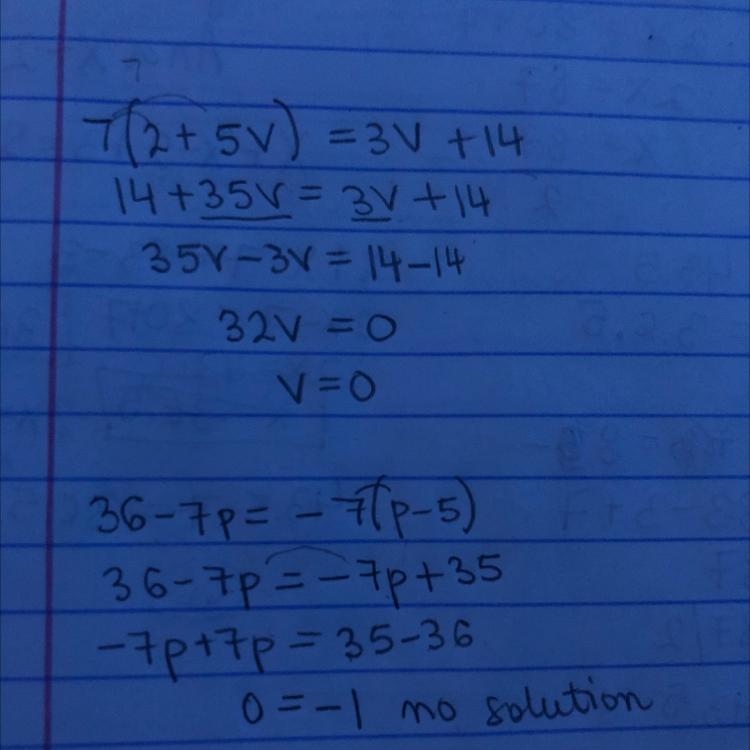 7(2 + 5V) = 3V + 14
14 + 35V = 3V + 14
35V - 3V = 14 - 14
32V = 0
V = 0
36 - 7p = - 7(p - 5)
36 - 7p = -7p + 35
-7p + 7p = 35 - 36
0 = -1 no solution